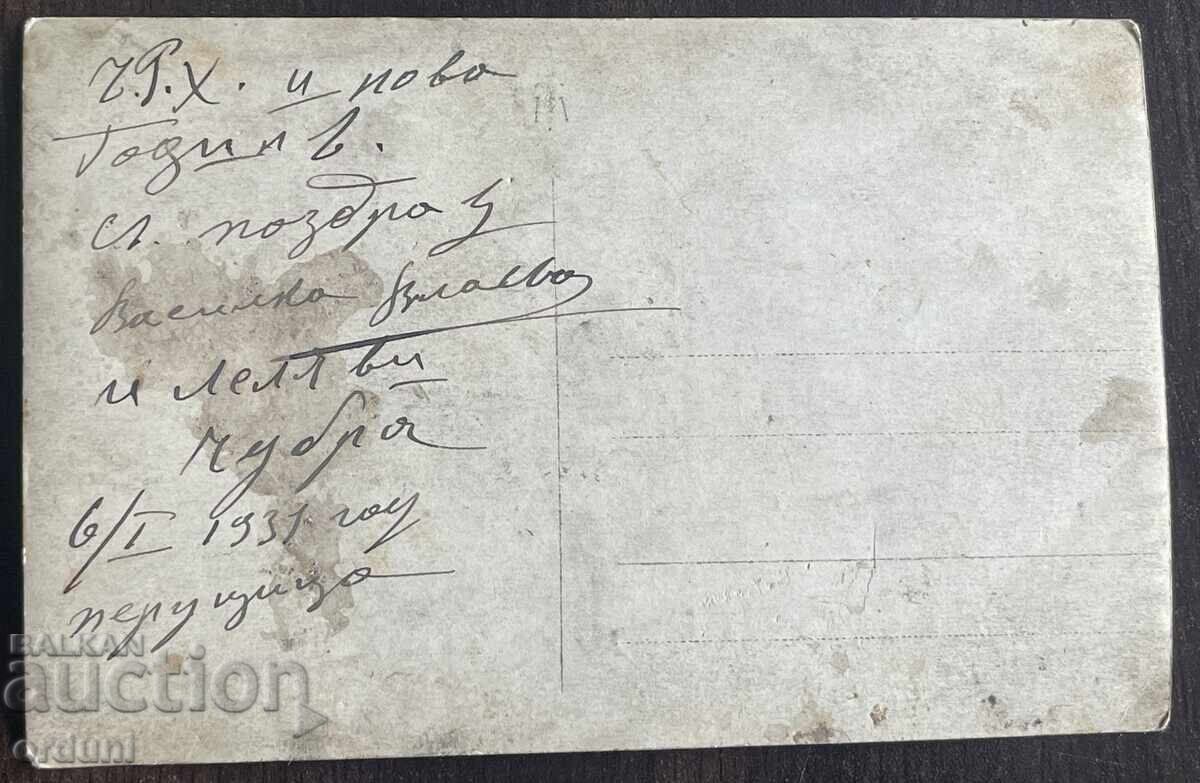 Ч.Р.Х. и нова
Година.
с поздрав
Василка Влаева
и леля ви
Чубра
6/I 1931 год
перущица
BALKAN
auction
orduni